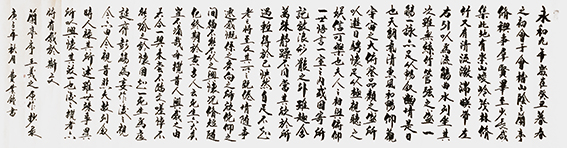 永和九年歲在癸丑暮春
之初會于會稽山陰之蘭亭
脩禊事也羣賢畢至少長咸
集此地有崇山峻領茂林脩
竹又有清流激湍暎帶左
右引以為流觴曲水列坐其
次雖無絲竹管弦之盛一
觴一詠亦足以暢敘幽情是日
也天朗氣清惠風和暢仰觀
宇宙之大俯察品類之盛所
以遊目騁懷足以極視聽之
娛信可樂也夫人之相與俯仰
一世或言一室之內或因寄所
託放浪形骸之外雖趣舍
萬殊靜躁不同當其欣於所
遇暫得於己怏然自足不知
老之將至及其所之既惓情隨事
遷感慨係之矣向之所欣俛仰之
間以為陳迹猶不能不以之興懷況脩短隨
化終期於盡古人云死生亦大矣
豈不痛哉每攬昔人興感之由
若合一契未嘗不臨文嗟悼不
能喻之於懷固知一死生為虛
誕齊彭殤為妄作後之視
今亦由今之視昔悲夫故列敘
時人錄其所述雖世殊事異
所以興懷其致一也後之攬者亦
將有感於斯文
蘭亭序王羲之
年秋月書